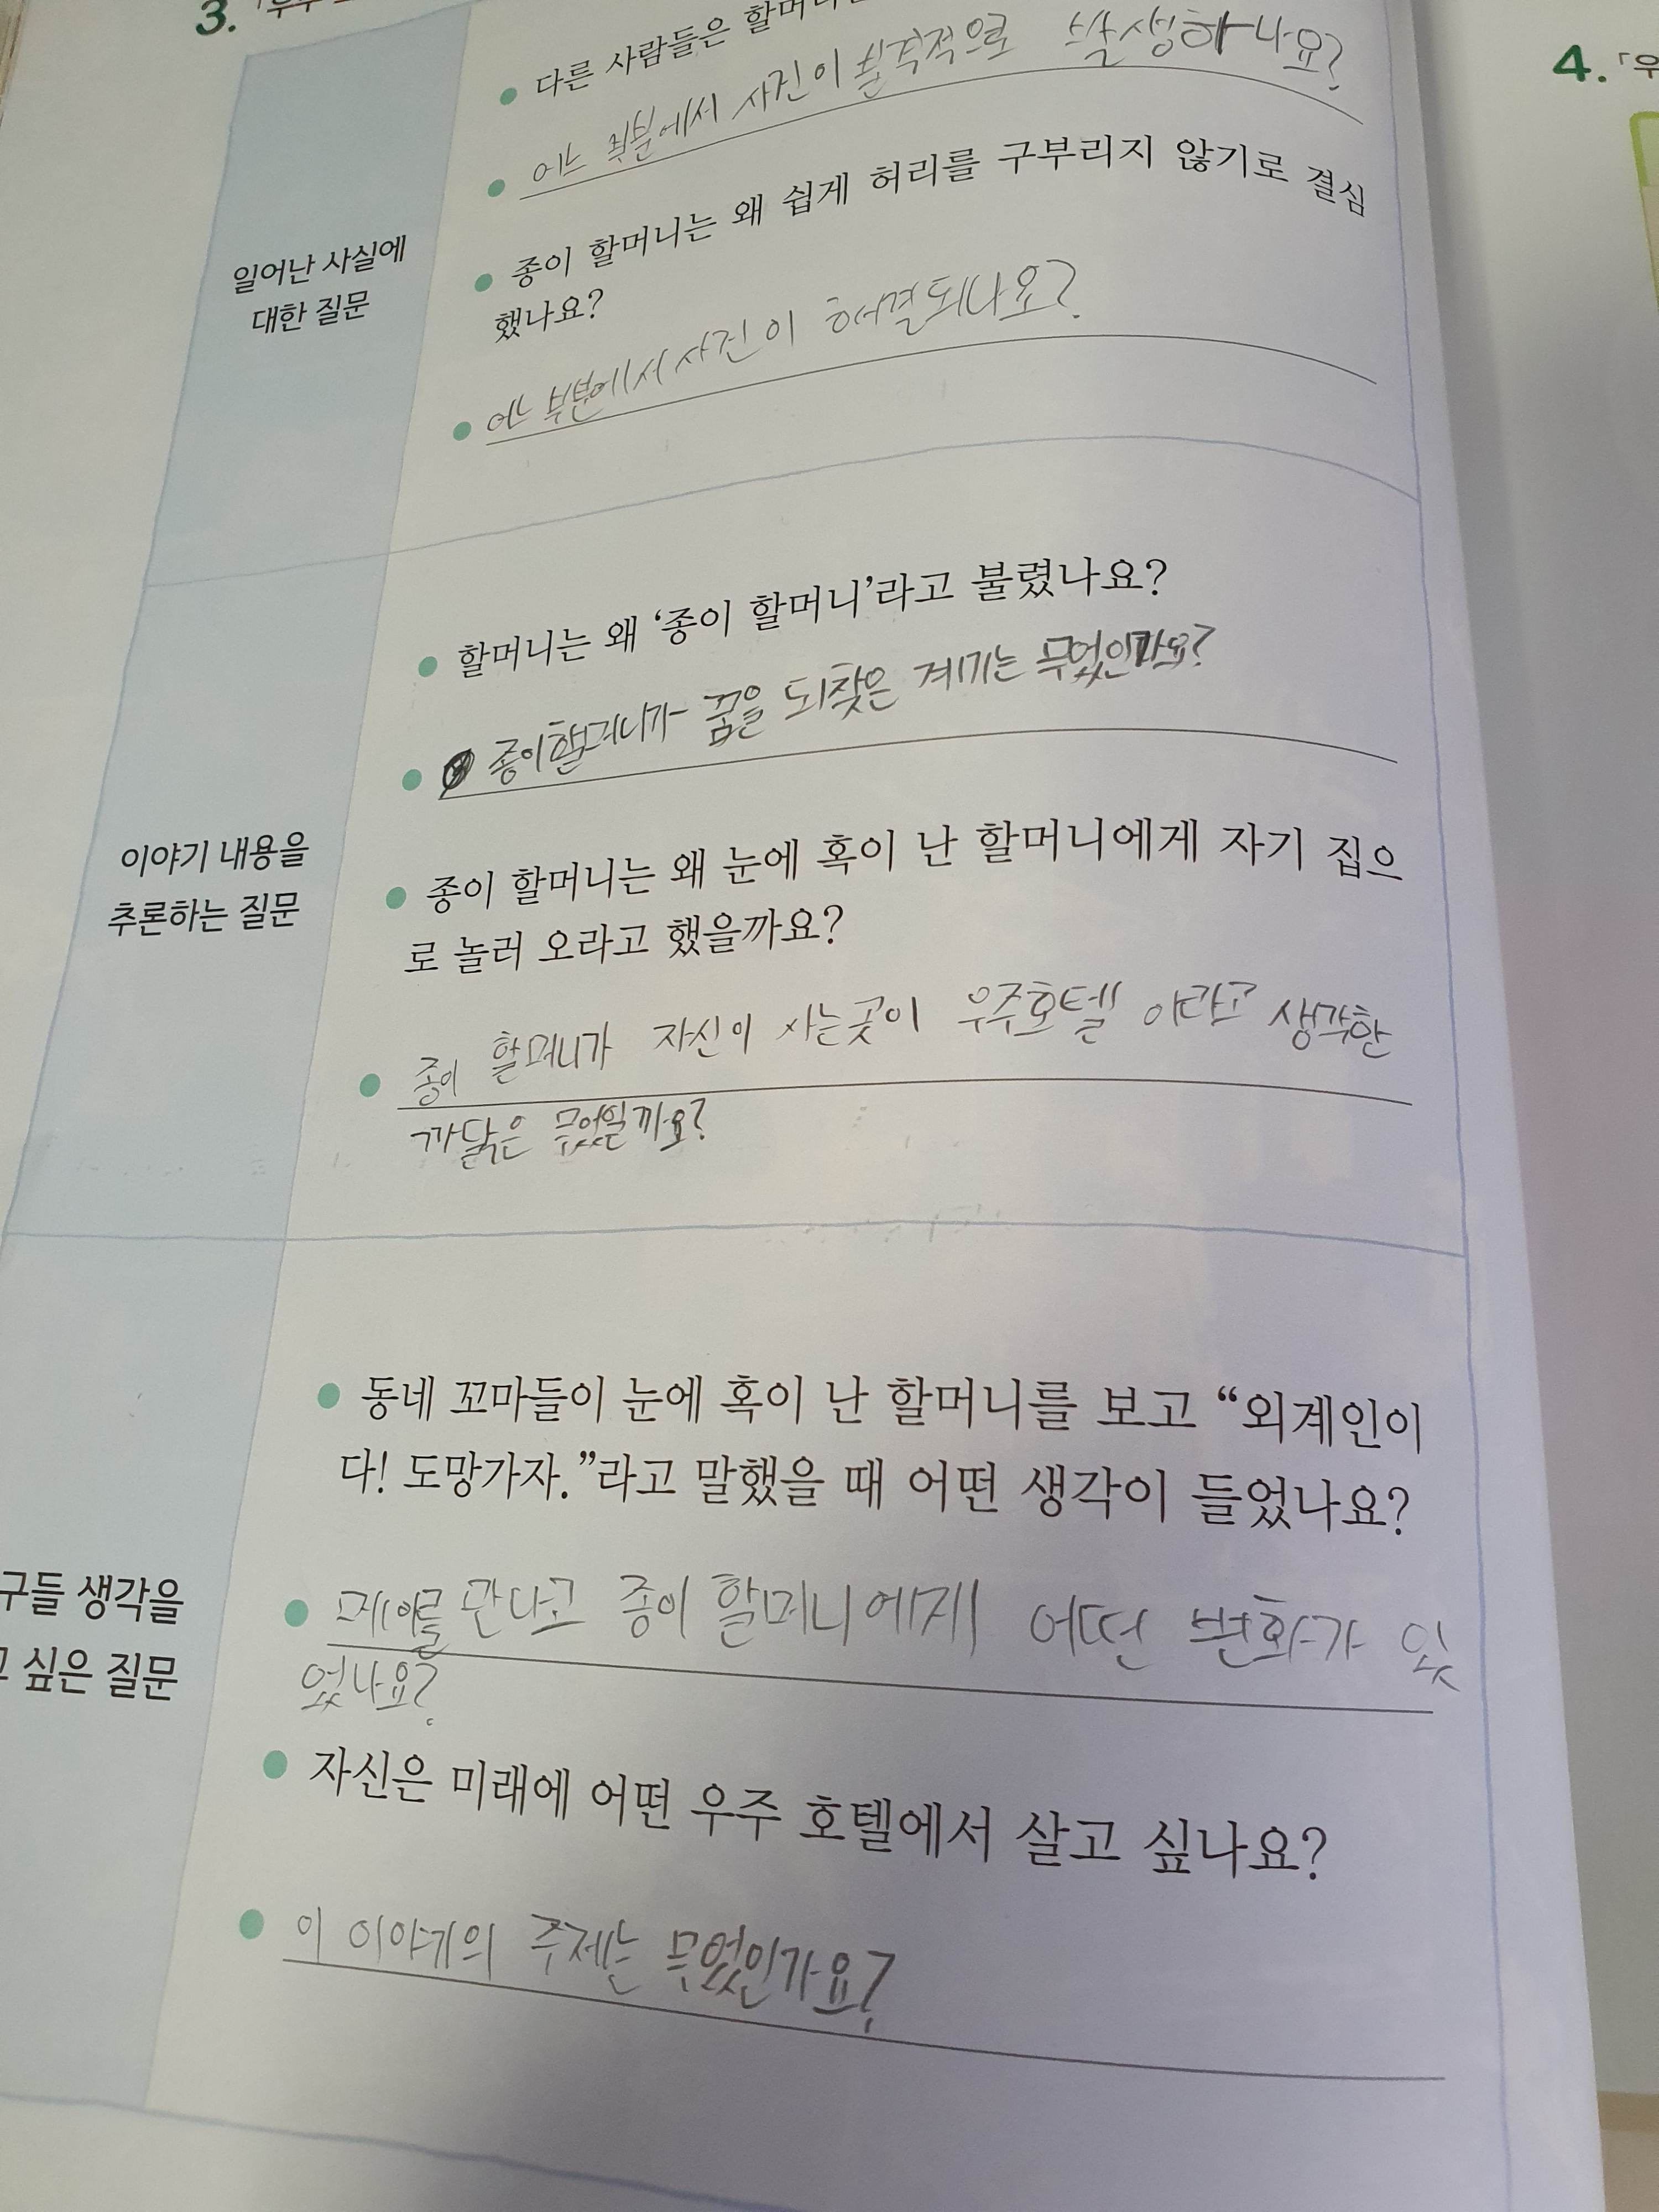 3. 「우주
다른 사람들은 할머니
어느 부분에서 사건이 본격적으로 발생하나요?
종이 할머니는 왜 쉽게 허리를 구부리지 않기로 결심
했나요?
어느 부분에서 사건이 해결되나요?
일어난 사실에
대한 질문
할머니는 왜 ‘종이 할머니’라고 불렸나요?
종이할머니가 꿈을 되찾은 계기는 무엇인가요?
종이 할머니는 왜 눈에 혹이 난 할머니에게 자기 집으
로 놀러 오라고 했을까요?
종이 할머니가 자신이 사는곳이 우주호텔 이라고 생각한
까닭은 무엇일까요?
이야기 내용을
추론하는 질문
동네 꼬마들이 눈에 혹이 난 할머니를 보고 “외계인이
다! 도망가자.”라고 말했을 때 어떤 생각이 들었나요?
만나고 종이 할머니에게 어떤 변화가 있
었나요?
자신은 미래에 어떤 우주 호텔에서 살고 싶나요?
이 이야기의 주제는 무엇인가요?
구들 생각을
고 싶은 질문
4. 「우